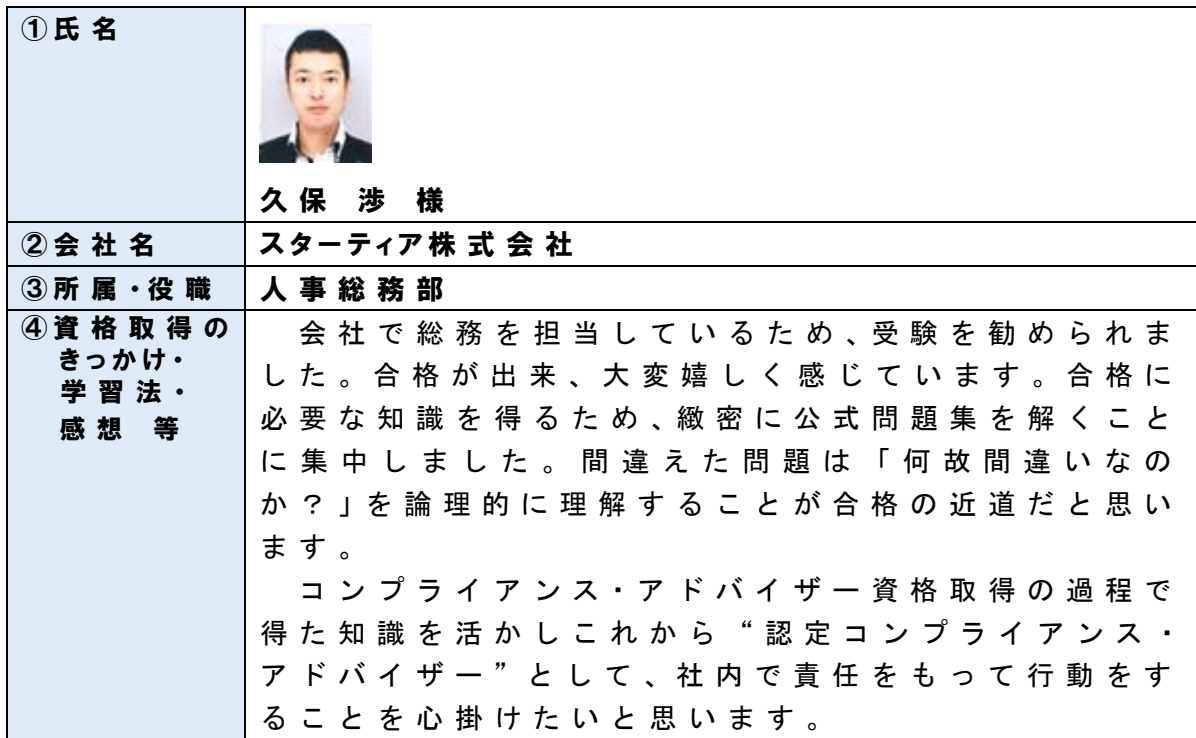 ①氏名
久保 渉 様
②会社名
スターティア株式会社
③所属・役職
人事総務部
④資格取得の
きっかけ・
学習法・
感想 等
会社で総務を担当しているため、受験を勧められま
した。合格が出来、大変嬉しく感じています。合格に
必要な知識を得るため、緻密に公式問題集を解くこと
に集中しました。間違えた問題は「何故間違いなの
か?」を論理的に理解することが合格の近道だと思い
ます。
コンプライアンス・アドバイザー資格取得の過程で
得た知識を活かしこれから“認定コンプライアンス・
アドバイザー”として、社内で責任をもって行動をす
ることを心掛けたいと思います。